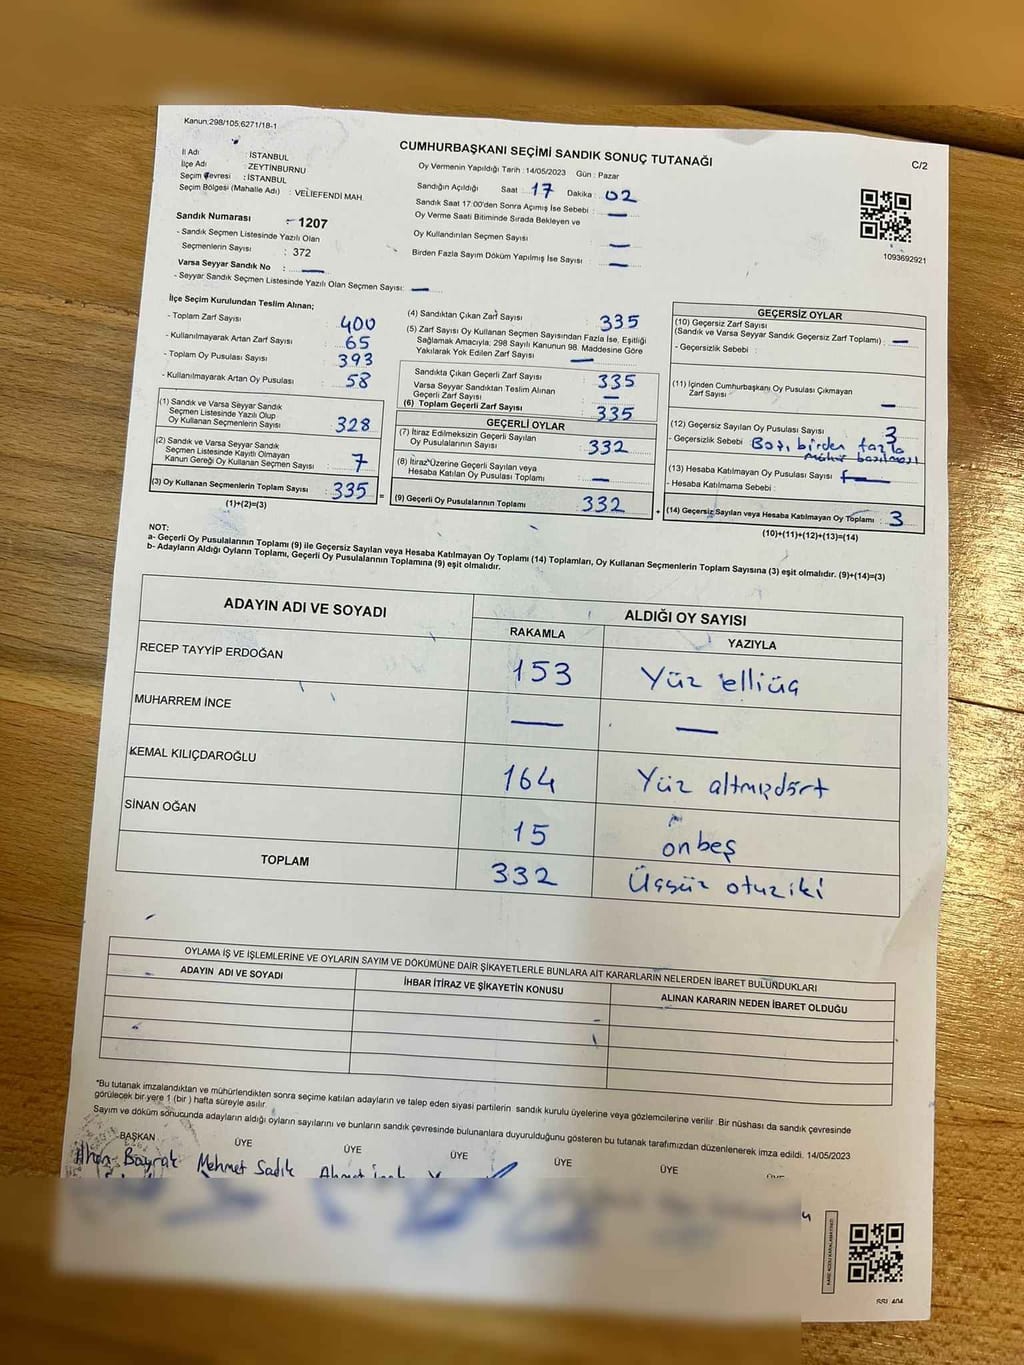 Kanun:298/105.6271/18-1
CUMHURBAŞKANI SEÇİMİ SANDIK SONUÇ TUTANAĞI
C/2
İl Adı : İSTANBUL
İlçe Adı : ZEYTİNBURNU
Seçim Çevresi : İSTANBUL
Seçim Bölgesi (Mahalle Adı) : VELİEFENDİ MAH.
Sandık Numarası : 1207
- Sandık Seçmen Listesinde Yazılı Olan
Seçmenlerin Sayısı : 372
Varsa Seyyar Sandık No : —
- Seyyar Sandık Seçmen Listesinde Yazılı Olan Seçmen Sayısı: —
Oy Vermenin Yapıldığı Tarih : 14/05/2023 Gün : Pazar
Sandığın Açıldığı Saat : 17 Dakika : 02
Sandık Saat 17:00'den Sonra Açımış İse Sebebi : —
Oy Verme Saati Bitiminde Sırada Bekleyen ve
Oy Kullandırılan Seçmen Sayısı : —
Birden Fazla Sayım Döküm Yapılmış İse Sayısı : —
1093692921
İlçe Seçim Kurulundan Teslim Alınan;
- Toplam Zarf Sayısı : 400
- Kullanılmayarak Artan Zarf Sayısı : 65
- Toplam Oy Pusulası Sayısı : 393
- Kullanılmayarak Artan Oy Pusulası : 58
(1) Sandık ve Varsa Seyyar Sandık
Seçmen Listesinde Yazılı Olup
Oy Kullanan Seçmenlerin Sayısı : 328
(2) Sandık ve Varsa Seyyar Sandık
Seçmen Listesinde Kayıtlı Olmayan
Kanun Gereği Oy Kullanan Seçmen Sayısı : 7
(3) Oy Kullanan Seçmenlerin Toplam Sayısı : 335
(1)+(2)=(3)
(4) Sandıktan Çıkan Zarf Sayısı : 335
(5) Zarf Sayısı Oy Kullanan Seçmen Sayısından Fazla İse, Eşitliği
Sağlamak Amacıyla; 298 Sayılı Kanunun 98. Maddesine Göre
Yakılarak Yok Edilen Zarf Sayısı : —
Sandıkta Çıkan Geçerli Zarf Sayısı : 335
Varsa Seyyar Sandıktan Teslim Alınan
Geçerli Zarf Sayısı : —
(6) Toplam Geçerli Zarf Sayısı : 335
GEÇERLİ OYLAR
(7) İtiraz Edilmeksizin Geçerli Sayılan
Oy Pusulalarının Sayısı : 332
(8) İtiraz Üzerine Geçerli Sayılan veya
Hesaba Katılan Oy Pusulası Toplamı : —
(9) Geçerli Oy Pusulalarının Toplamı : 332
GEÇERSİZ OYLAR
(10) Geçersiz Zarf Sayısı
(Sandık ve Varsa Seyyar Sandık Geçersiz Zarf Toplamı) : —
- Geçersizlik Sebebi :
(11) İçinden Cumhurbaşkanı Oy Pusulası Çıkmayan
Zarf Sayısı : —
(12) Geçersiz Sayılan Oy Pusulası Sayısı : 3
- Geçersizlik Sebebi : Boş, birden fazla
mühür basılması
(13) Hesaba Katılmayan Oy Pusulası Sayısı : —
- Hesaba Katılmama Sebebi :
(14) Geçersiz Sayılan veya Hesaba Katılmayan Oy Toplamı : 3
(10)+(11)+(12)+(13)=(14)
NOT:
a- Geçerli Oy Pusulalarının Toplamı (9) ile Geçersiz Sayılan veya Hesaba Katılmayan Oy Toplamı (14) Toplamları, Oy Kullanan Seçmenlerin Toplam Sayısına (3) eşit olmalıdır. (9)+(14)=(3)
b- Adayların Aldığı Oyların Toplamı, Geçerli Oy Pusulalarının Toplamına (9) eşit olmalıdır.
ADAYIN ADI VE SOYADI ALDIĞI OY SAYISI
RAKAMLA YAZIYLA
RECEP TAYYİP ERDOĞAN 153 Yüz elliüç
MUHARREM İNCE — —
KEMAL KILIÇDAROĞLU 164 Yüz altmışdört
SİNAN OĞAN 15 onbeş
TOPLAM 332 Üçyüz otuziki
OYLAMA İŞ VE İŞLEMLERİNE VE OYLARIN SAYIM VE DÖKÜMÜNE DAİR ŞİKAYETLERLE BUNLARA AİT KARARLARIN NELERDEN İBARET BULUNDUKLARI
ADAYIN ADI VE SOYADI İHBAR İTİRAZ VE ŞİKAYETİN KONUSU ALINAN KARARIN NEDEN İBARET OLDUĞU
*Bu tutanak imzalandıktan ve mühürlendikten sonra seçime katılan adayların ve talep eden siyasi partilerin sandık kurulu üyelerine veya gözlemcilerine verilir. Bir nüshası da sandık çevresinde
görülecek bir yere 1 (bir ) hafta süreyle asılır.
Sayım ve döküm sonucunda adayların aldığı oyların sayılarını ve bunların sandık çevresinde bulunanlara duyurulduğunu gösteren bu tutanak tarafımızdan düzenlenerek imza edildi. 14/05/2023
BAŞKAN ÜYE ÜYE ÜYE ÜYE ÜYE ÜYE
İlhan Bayrak Mehmet Sadık Ahmet